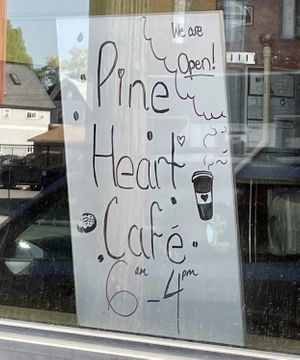 We are
Open!
Pine
Heart
Café
6am - 4pm